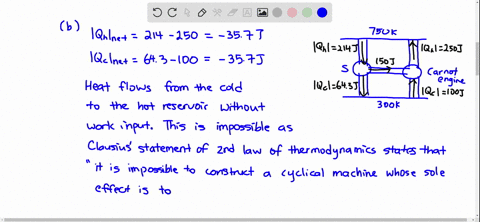 (b) |Qh|net = 214 - 250 = -35.7J
|Qc|net = 64.3 - 100 = -35.7J
Heat flows from the cold
to the hot reservoir without
work input. This is impossible as
Clausius' statement of 2nd law of thermodynamics states that
"it is impossible to construct a cyclical machine whose sole
effect is to
750K
|Qh|=214J
|Qh|=250J
150J
S
Carnot
engine
|Qc|=64.3J
|Qc|=100J
300K